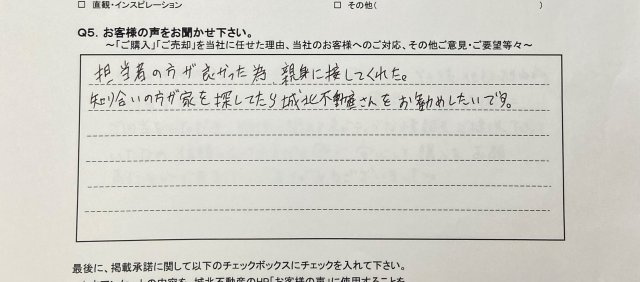 □ 直観・インスピレーション　□ その他(　)
Q5. お客様の声をお聞かせ下さい。
～「ご購入」「ご売却」を当社に任せた理由、当社のお客様へのご対応、その他ご意見・ご要望等々～
担当者の方が良かった為 親身に接してくれた。
知り合いの方が家を探してたら城北不動産さんをお勧めしたいです。
最後に、掲載承諾に関して以下のチェックボックスにチェックを入れて下さい。
アンケートの内容を、城北不動産のHP「お客様の声」に使用することを